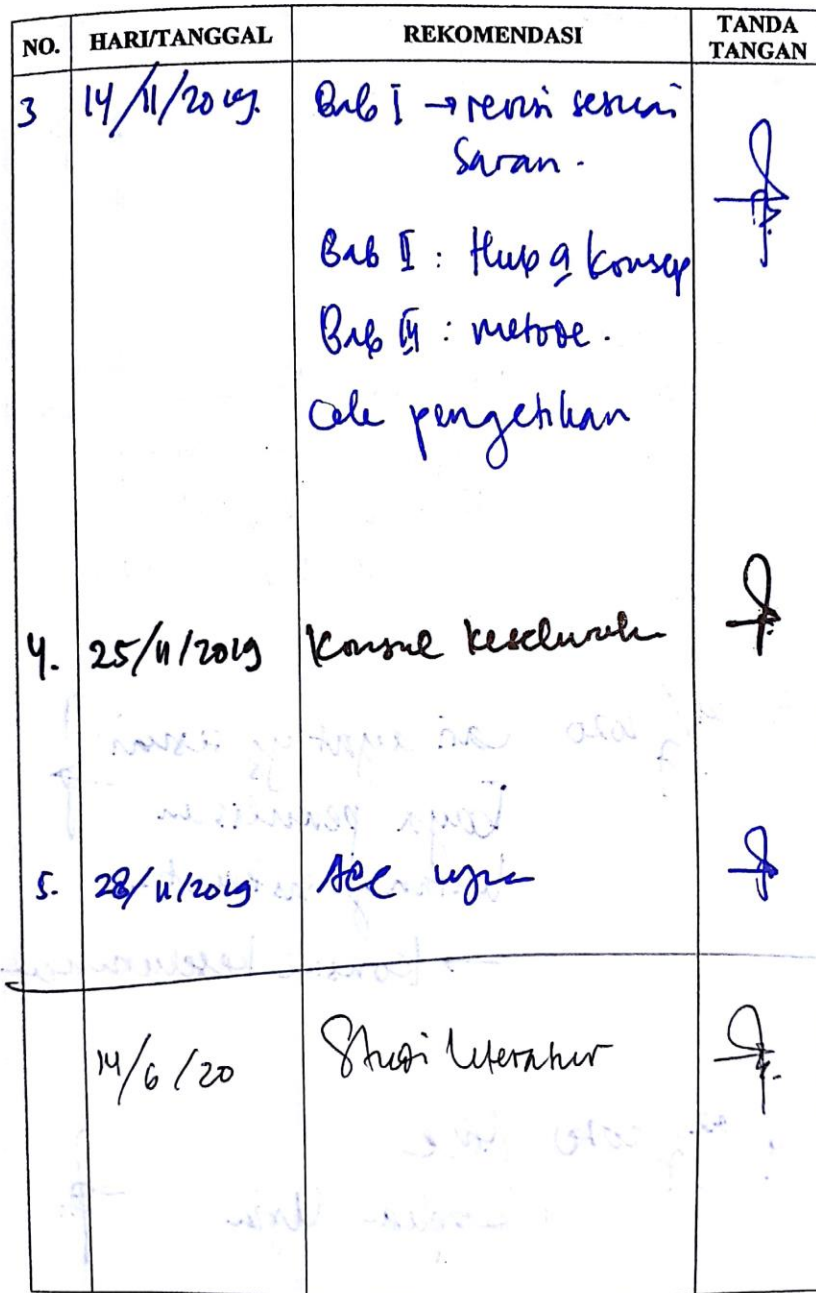 NO. HARI/TANGGAL REKOMENDASI TANDA TANGAN
3 14/11/2019. Bab I → revisi sesuai
Saran.
Bab II : Hub a konsep
Bab III : metode.
Cek pengetikan
4. 25/11/2019 Konsul keseluruhan
5. 28/11/2019 Acc ujian
14/6/20 Studi literatur